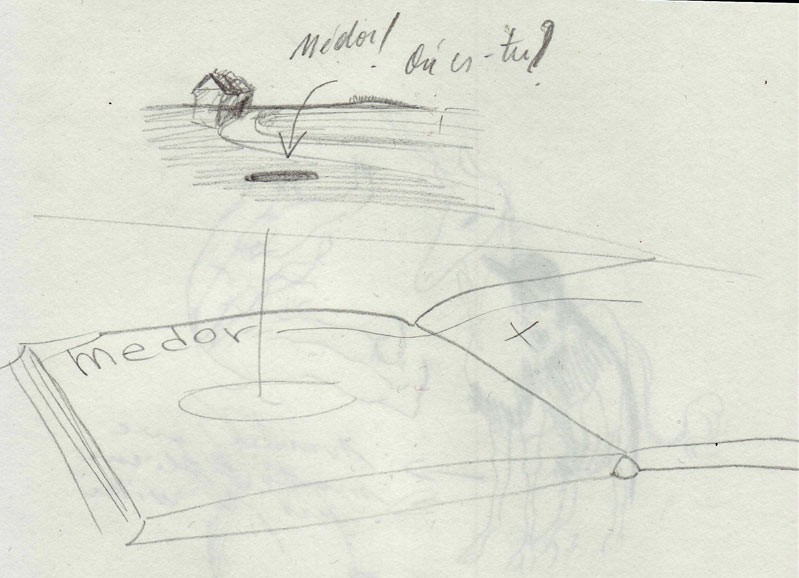 Médor! Où es-tu?
Medor
X